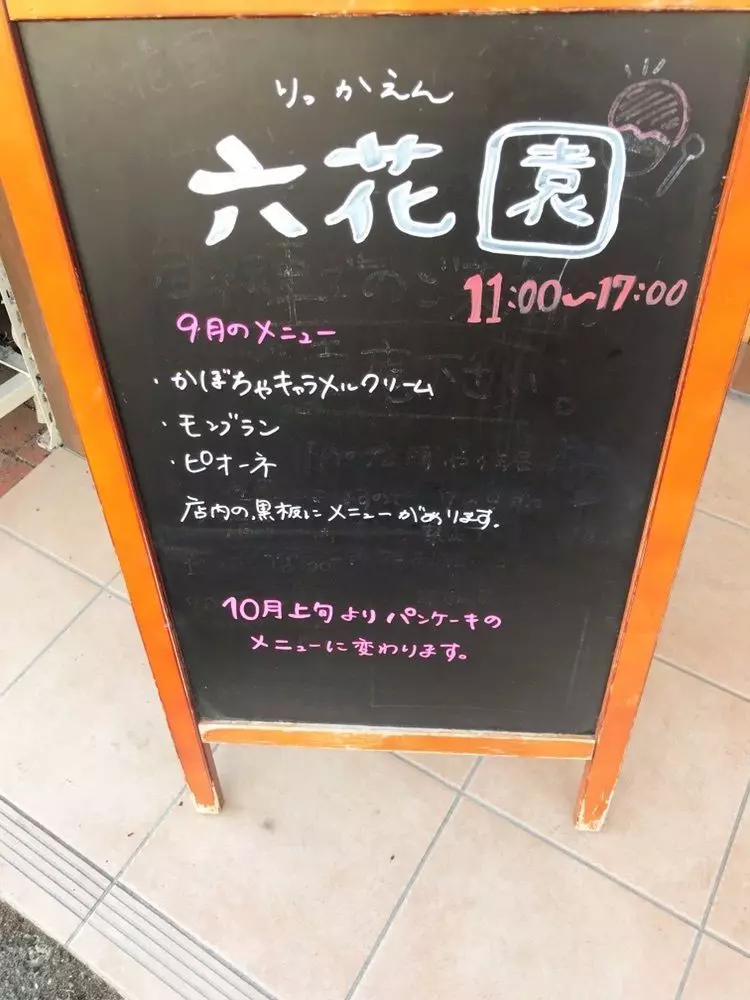 りっかえん
六花園
11:00〜17:00
9月のメニュー
・かぼちゃキャラメルクリーム
・モンブラン
・ピオーネ
店内の黒板にメニューがあります。
10月上旬よりパンケーキの
メニューに変わります。